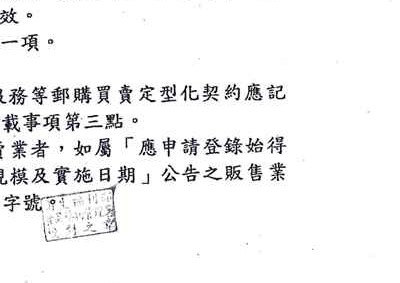 效。
一項。
服務等郵購買賣定型化契約應記
載事項第三點。
業者，如屬「應申請登錄始得
規模及實施日期」公告之販售業
字號。